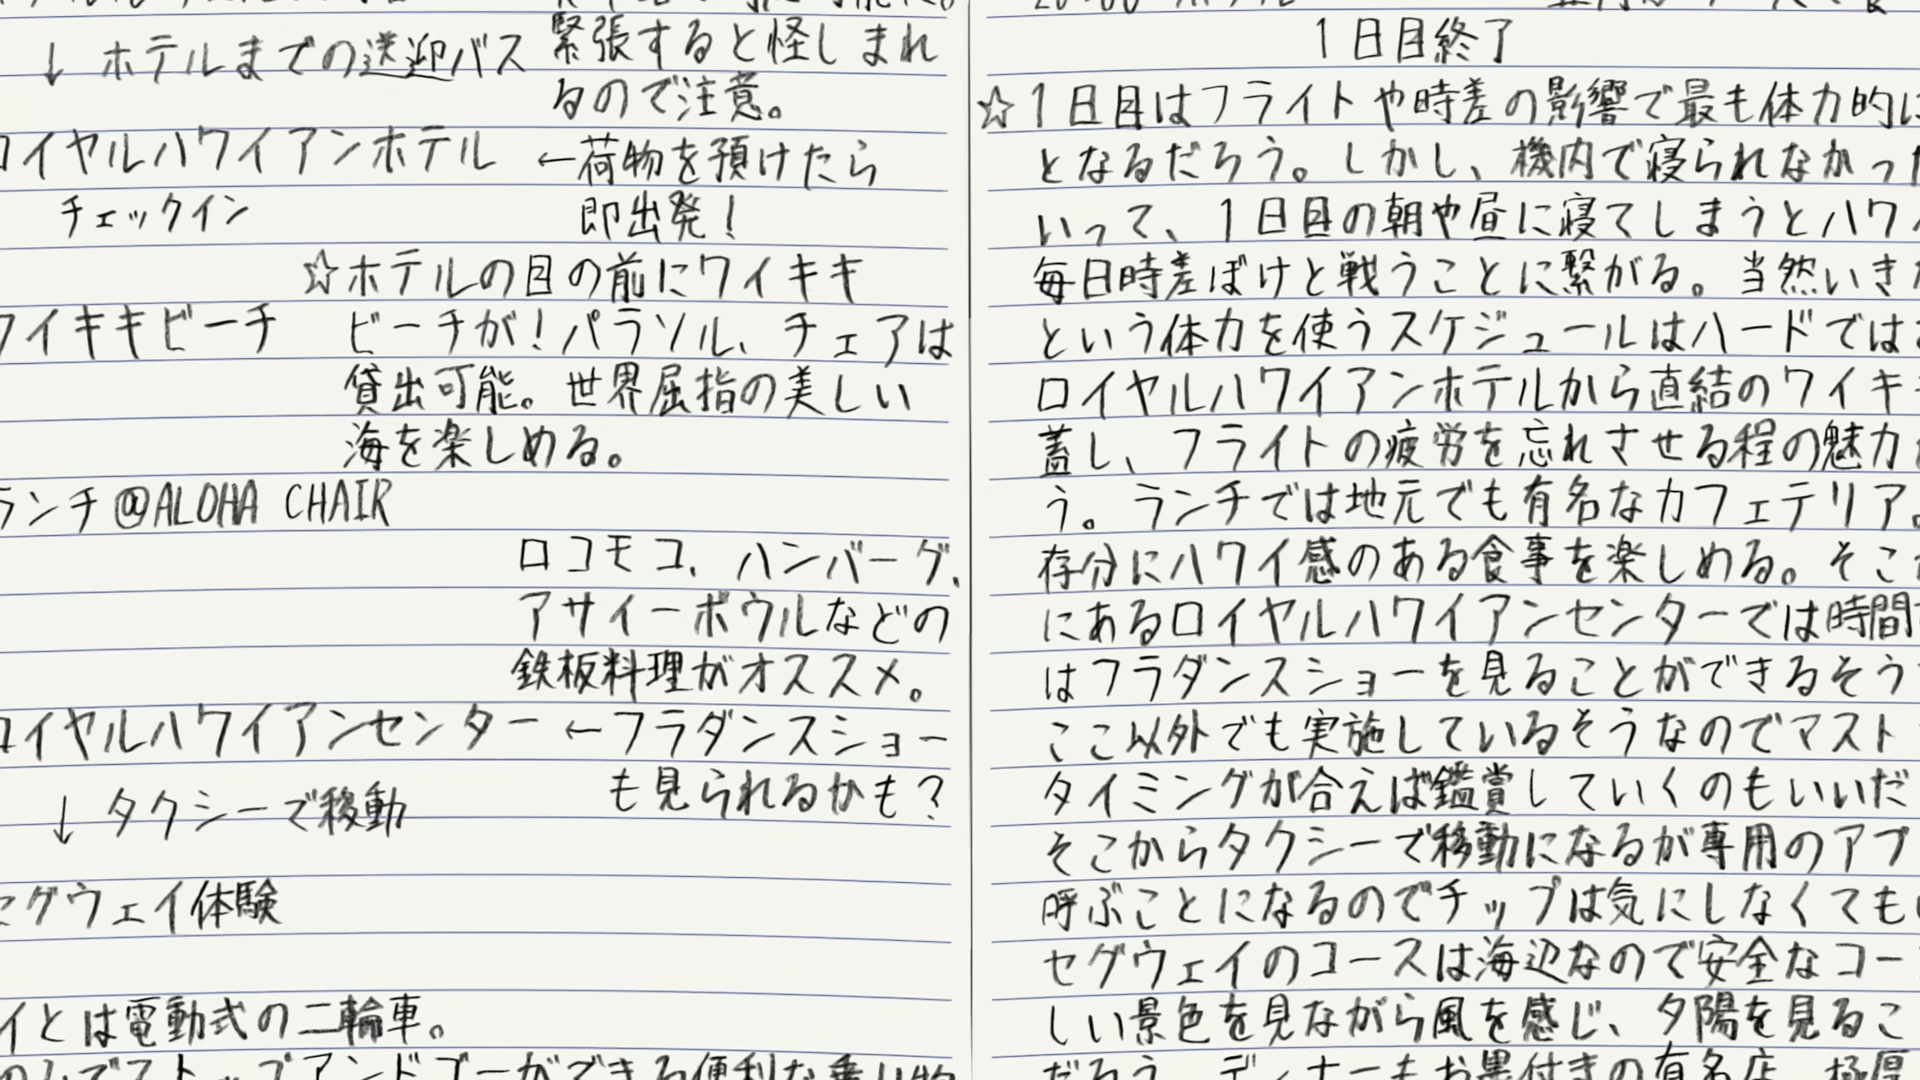 ↓ ホテルまでの送迎バス
緊張すると怪しまれ
るので注意。
ロイヤルハワイアンホテル ←荷物を預けたら
チェックイン 即出発！
☆ホテルの目の前にワイキキ
ワイキキビーチ ビーチが！パラソル、チェアは
貸出可能。世界屈指の美しい
海を楽しめる。
ランチ@ALOHA CHAIR
ロコモコ、ハンバーグ、
アサイーボウルなどの
鉄板料理がオススメ。
ロイヤルハワイアンセンター ←フラダンスショー
も見られるかも？
↓ タクシーで移動
セグウェイ体験
イとは電動式の二輪車。
ストップアンドゴーができる便利な乗り物
1日目終了
☆1日目はフライトや時差の影響で最も体力的に
となるだろう。しかし、機内で寝られなかった
いって、1日目の朝や昼に寝てしまうとハワ
毎日時差ぼけと戦うことに繋がる。当然いき
という体力を使うスケジュールはハードでは
ロイヤルハワイアンホテルから直結のワイキ
蓋し、フライトの疲労を忘れさせる程の魅力
う。ランチでは地元でも有名なカフェテリア。
存分にハワイ感のある食事を楽しめる。そこ
にあるロイヤルハワイアンセンターでは時間
はフラダンスショーを見ることができるそう
ここ以外でも実施しているそうなのでマスト
タイミングが合えば鑑賞していくのもいいだ
そこからタクシーで移動になるが専用のアプ
呼ぶことになるのでチップは気にしなくても
セグウェイのコースは海辺なので安全なコー
しい景色を見ながら風を感じ、夕陽を見るこ
だろう。ディナーもお墨付きの有名店。極厚